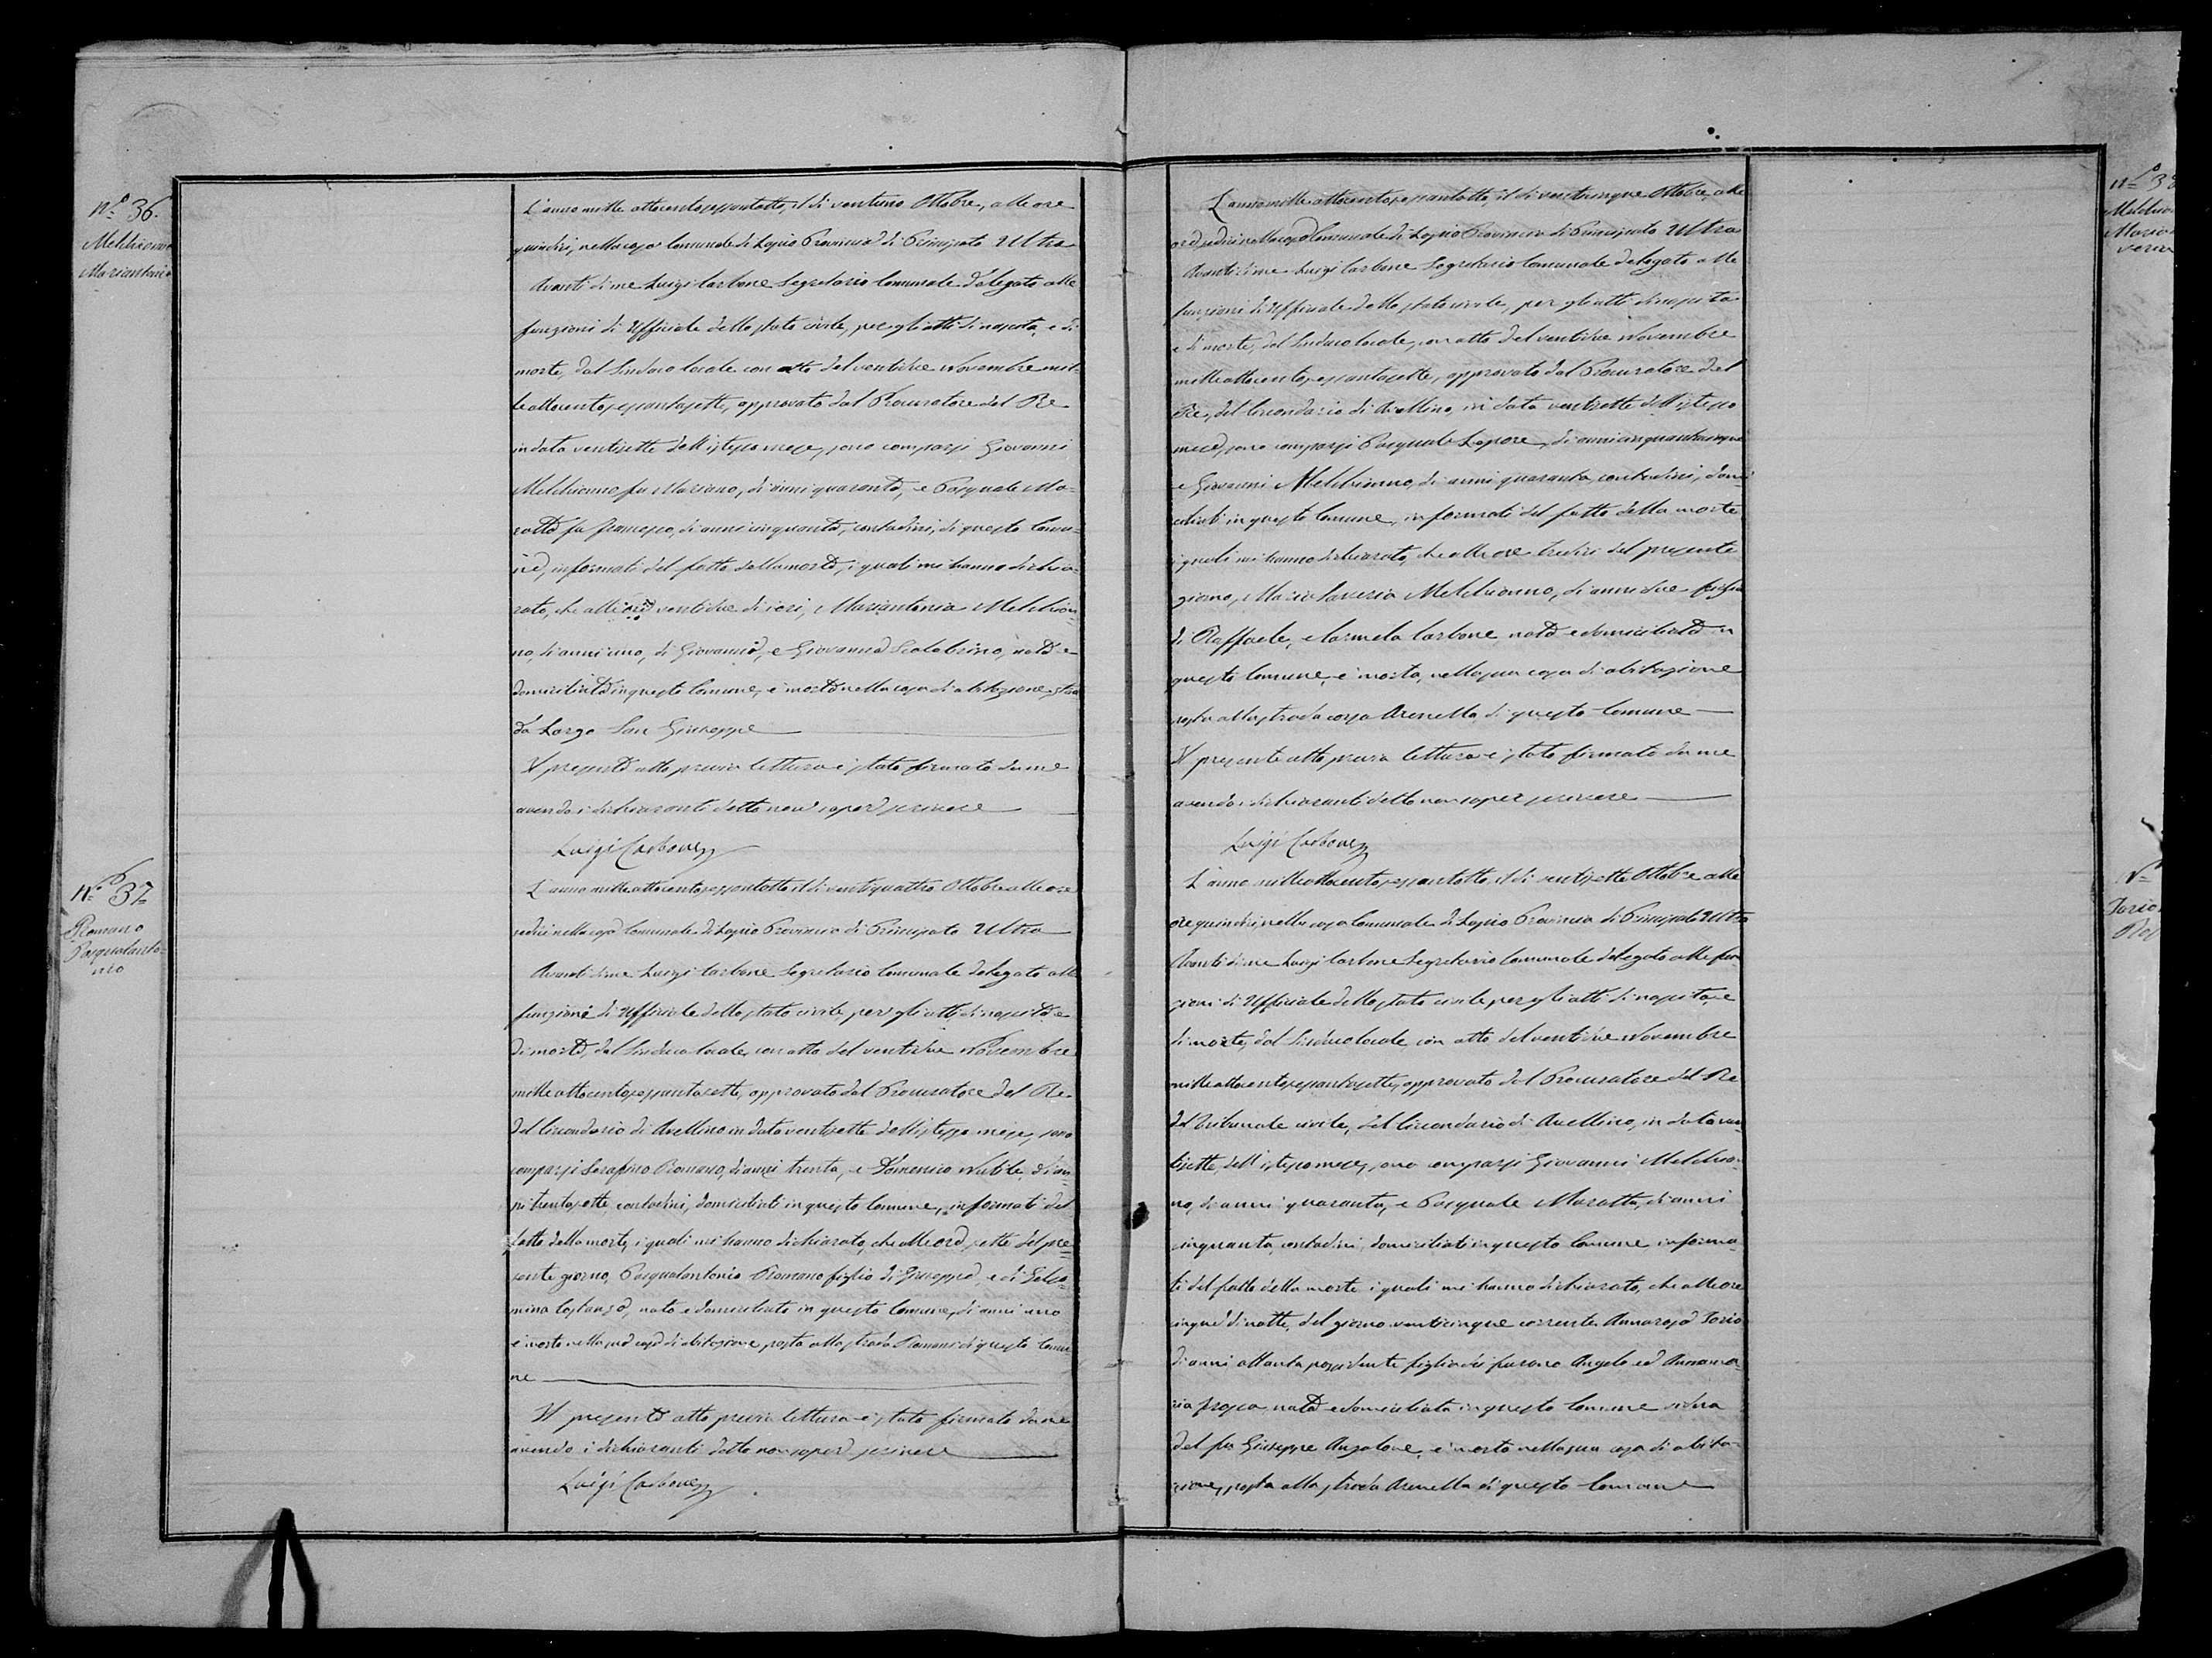 Nº 36.
Melchionno
Mariantonia
L'anno mille ottocentosessantotto, il di ventuno Ottobre, alle ore
quindici, nella casa Comunale di Lapio Provincia di Principato Ultra
Avanti di me Luigi Carbone Segretario Comunale delegato alle
funzioni di Uffiziale dello stato civile, per gli atti di nascita, e di
morte, dal Sindaco locale con atto del ventidue Novembre mil-
le ottocentosessantasette, approvato dal Procuratore del Re
in data ventisette dell'istesso mese, sono comparsi Giovanni
Melchionno fu Mariano, di anni quaranta, e Pasquale Ma-
ratta fu Francesco, di anni cinquanta, contadini, di questo Comu-
ne, informati del fatto della morte, i quali mi hanno dichia-
rato, che alle ore ventidue di ieri, Mariantonia Melchion-
no, di anni uno, di Giovanni, e Giovanna Scalabrino, nata e
domiciliata in questo Comune, è morta nella casa di abitazione stra
da Largo San Giuseppe
Il presente atto previa lettura è stato firmato da me
avendo i dichiaranti detto non saper scrivere
Luigi Carbone
Nº 37
Romano
Pasqualanto-
nio
L'anno mille ottocentosessantotto il di ventiquattro Ottobre alle ore
sedici nella casa Comunale di Lapio Provincia di Principato Ultra
Avanti di me Luigi Carbone Segretario Comunale delegato alle
funzioni di Uffiziale dello stato civile per gli atti di nascita e
di morte, dal Sindaco locale, con atto del ventidue Novembre
mille ottocentosessantasette, approvato dal Procuratore del Re
del Circondario di Avellino in data ventisette dell'istesso mese, sono
comparsi Serafino Romano, di anni trenta, e Domenico Nubile, di an-
ni trentasette, contadini, domiciliati in questo Comune, informati del
fatto della morte, i quali mi hanno dichiarato, che alle ore sette del pre-
sente giorno, Pasqualantonio Romano figlio di Giuseppe, e di Gelso-
mina Costanzo, nato e domiciliato in questo Comune, di anni uno
è morto nella sua casa di abitazione, posta alla strada Romani di questo Comu-
ne
Il presente atto previa lettura è stato firmato da me
avendo i dichiaranti detto non saper scrivere
Luigi Carbone
L'anno mille ottocentosessantotto il di venticinque Ottobre, alle
ore sedici nella casa Comunale di Lapio Provincia di Principato Ultra
Avanti di me Luigi Carbone Segretario Comunale delegato alle
funzioni di Uffiziale dello stato civile, per gli atti di nascita
e di morte, dal Sindaco locale, con atto del ventidue Novembre
mille ottocentosessantasette, approvato dal Procuratore del
Re, del Circondario di Avellino, in data ventisette dell'istesso
mese, sono comparsi Pasquale Lepore, di anni cinquantacinque
e Giovanni Melchionno, di anni quaranta, contadini, domi-
ciliati in questo Comune, informati del fatto della morte
i quali mi hanno dichiarato, che alle ore tredici del presente
giorno, Maria Saveria Melchionno, di anni due figlia
di Raffaele, e Carmela Carbone, nata e domiciliata in
questo Comune, è morta, nella sua casa di abitazione
posta alla strada Arenella, di questo Comune
Il presente atto previa lettura è stato firmato da me
avendo i dichiaranti detto non saper scrivere
Luigi Carbone
L'anno mille ottocentosessantotto, il di ventisette Ottobre alle
ore quindici, nella casa Comunale di Lapio Provincia di Principato Ultra
Avanti di me Luigi Carbone Segretario Comunale delegato alle fun-
zioni di Uffiziale dello stato civile per gli atti di nascita, e
di morte, dal Sindaco locale con atto del ventidue Novembre
mille ottocentosessantasette, approvato dal Procuratore del Re
del Tribunale civile, del Circondario di Avellino, in data ven-
tisette, dell'istesso mese, sono comparsi Giovanni Melchion-
no, di anni quaranta, e Pasquale Maratta, di anni
cinquanta, contadini, domiciliati in questo Comune informa-
ti del fatto della morte i quali mi hanno dichiarato, che alle ore
cinque di notte, del giorno venticinque corrente Annarosa Iorio
di anni ottanta possidente figlia dei furono Angelo ed Annama-
ria nata e domiciliata in questo Comune vedova
del fu Giuseppe Anzalone, è morta nella sua casa di abita-
zione, posta alla strada Arenella di questo Comune
Nº 3
Melchion
Maria
veria
Nº
Iorio